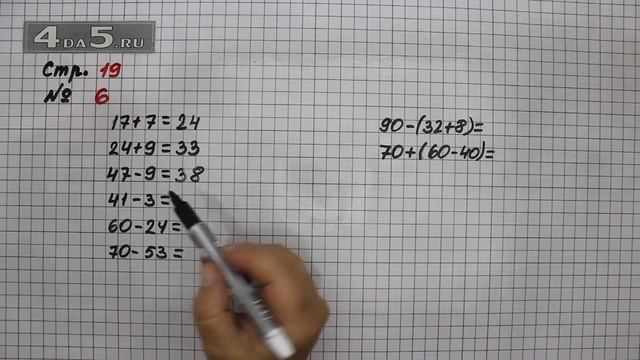 4DA5.RU
Стр. 19
№ 6
17+7=24
24+9=33
47-9=38
41-3=
60-24=
70-53=
90-(32+8)=
70+(60-40)=